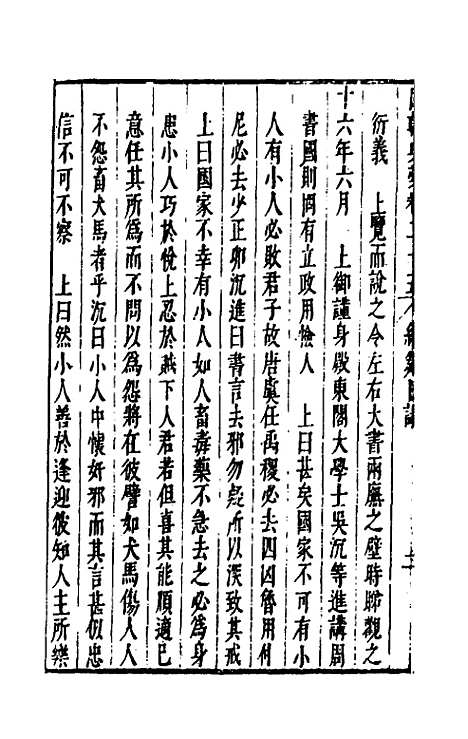 衍義　上覽而說之令左右大書兩廡之壁時睇觀之
十六年六月　上御謹身殿東閣大學士吳沉等進講周
書國則罔有立政用憸人　上曰甚矣國家不可有小
人有小人必敗君子故唐虞任禹稷必去四凶魯用仲
尼必去少正卯沉進曰書言去邪勿疑所以深致其戒
上曰國家不幸有小人如人畜毒藥不急去之必為身
患小人巧於悅上忍於賊下人君若但喜其能順適已
意任其所為而不問以為怨將在彼譬如犬馬傷人人
不怨畜犬馬者乎沉曰小人中懷奸邪而其言甚似忠
信不可不察　上曰然小人善於逢迎彼知人主所樂